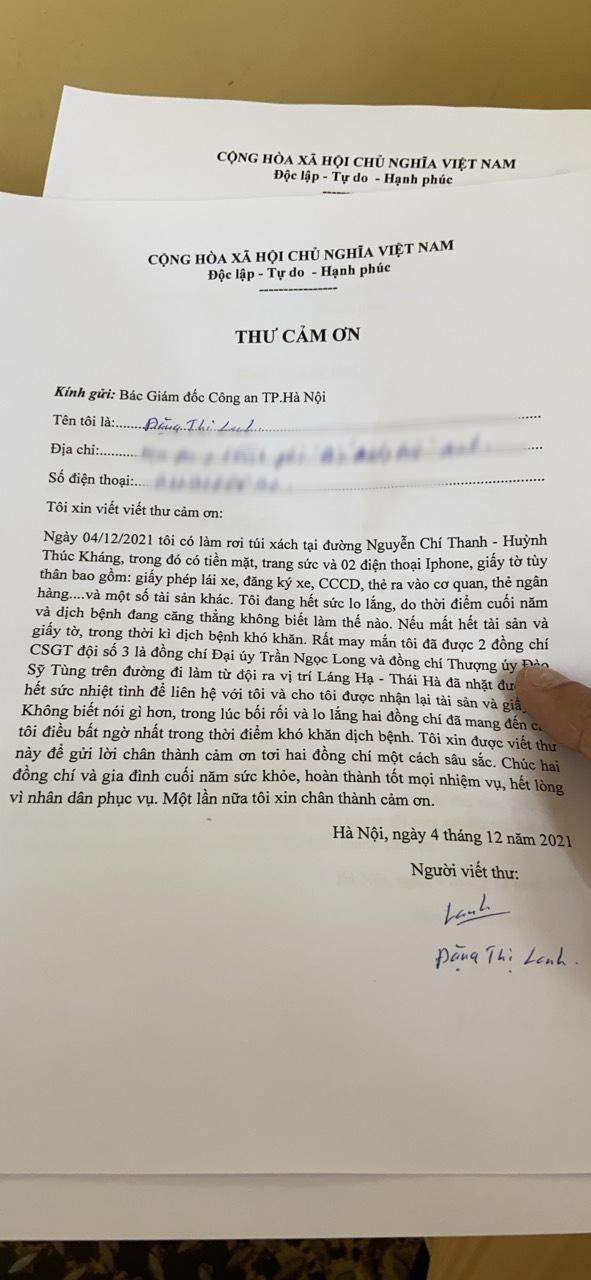 CỘNG HÒA XÃ HỘI CHỦ NGHĨA VIỆT NAM
Độc lập - Tự do - Hạnh phúc
CỘNG HÒA XÃ HỘI CHỦ NGHĨA VIỆT NAM
Độc lập - Tự do - Hạnh phúc
THƯ CẢM ƠN
Kính gửi: Bác Giám đốc Công an TP.Hà Nội
Tên tôi là: Đặng Thị Lanh
Địa chỉ:
Số điện thoại:
Tôi xin viết viết thư cảm ơn:
Ngày 04/12/2021 tôi có làm rơi túi xách tại đường Nguyễn Chí Thanh - Huỳnh
Thúc Kháng, trong đó có tiền mặt, trang sức và 02 điện thoại Iphone, giấy tờ tùy
thân bao gồm: giấy phép lái xe, đăng ký xe, CCCD, thẻ ra vào cơ quan, thẻ ngân
hàng....và một số tài sản khác. Tôi đang hết sức lo lắng, do thời điểm cuối năm
và dịch bệnh đang căng thẳng không biết làm thế nào. Nếu mất hết tài sản và
giấy tờ, trong thời kì dịch bệnh khó khăn. Rất may mắn tôi đã được 2 đồng chí
CSGT đội số 3 là đồng chí Đại úy Trần Ngọc Long và đồng chí Thượng úy Đào
Sỹ Tùng trên đường đi làm từ đội ra vị trí Láng Hạ - Thái Hà đã nhặt
hết sức nhiệt tình để liên hệ với tôi và cho tôi được nhận lại tài sản và
Không biết nói gì hơn, trong lúc bối rối và lo lắng hai đồng chí đã mang đến
tôi điều bất ngờ nhất trong thời điểm khó khăn dịch bệnh. Tôi xin được viết thư
này để gửi lời chân thành cảm ơn tơi hai đồng chí một cách sâu sắc. Chúc hai
đồng chí và gia đình cuối năm sức khỏe, hoàn thành tốt mọi nhiệm vụ, hết lòng
vì nhân dân phục vụ. Một lần nữa tôi xin chân thành cảm ơn.
Hà Nội, ngày 4 tháng 12 năm 2021
Người viết thư:
Lanh
Đặng Thị Lanh.